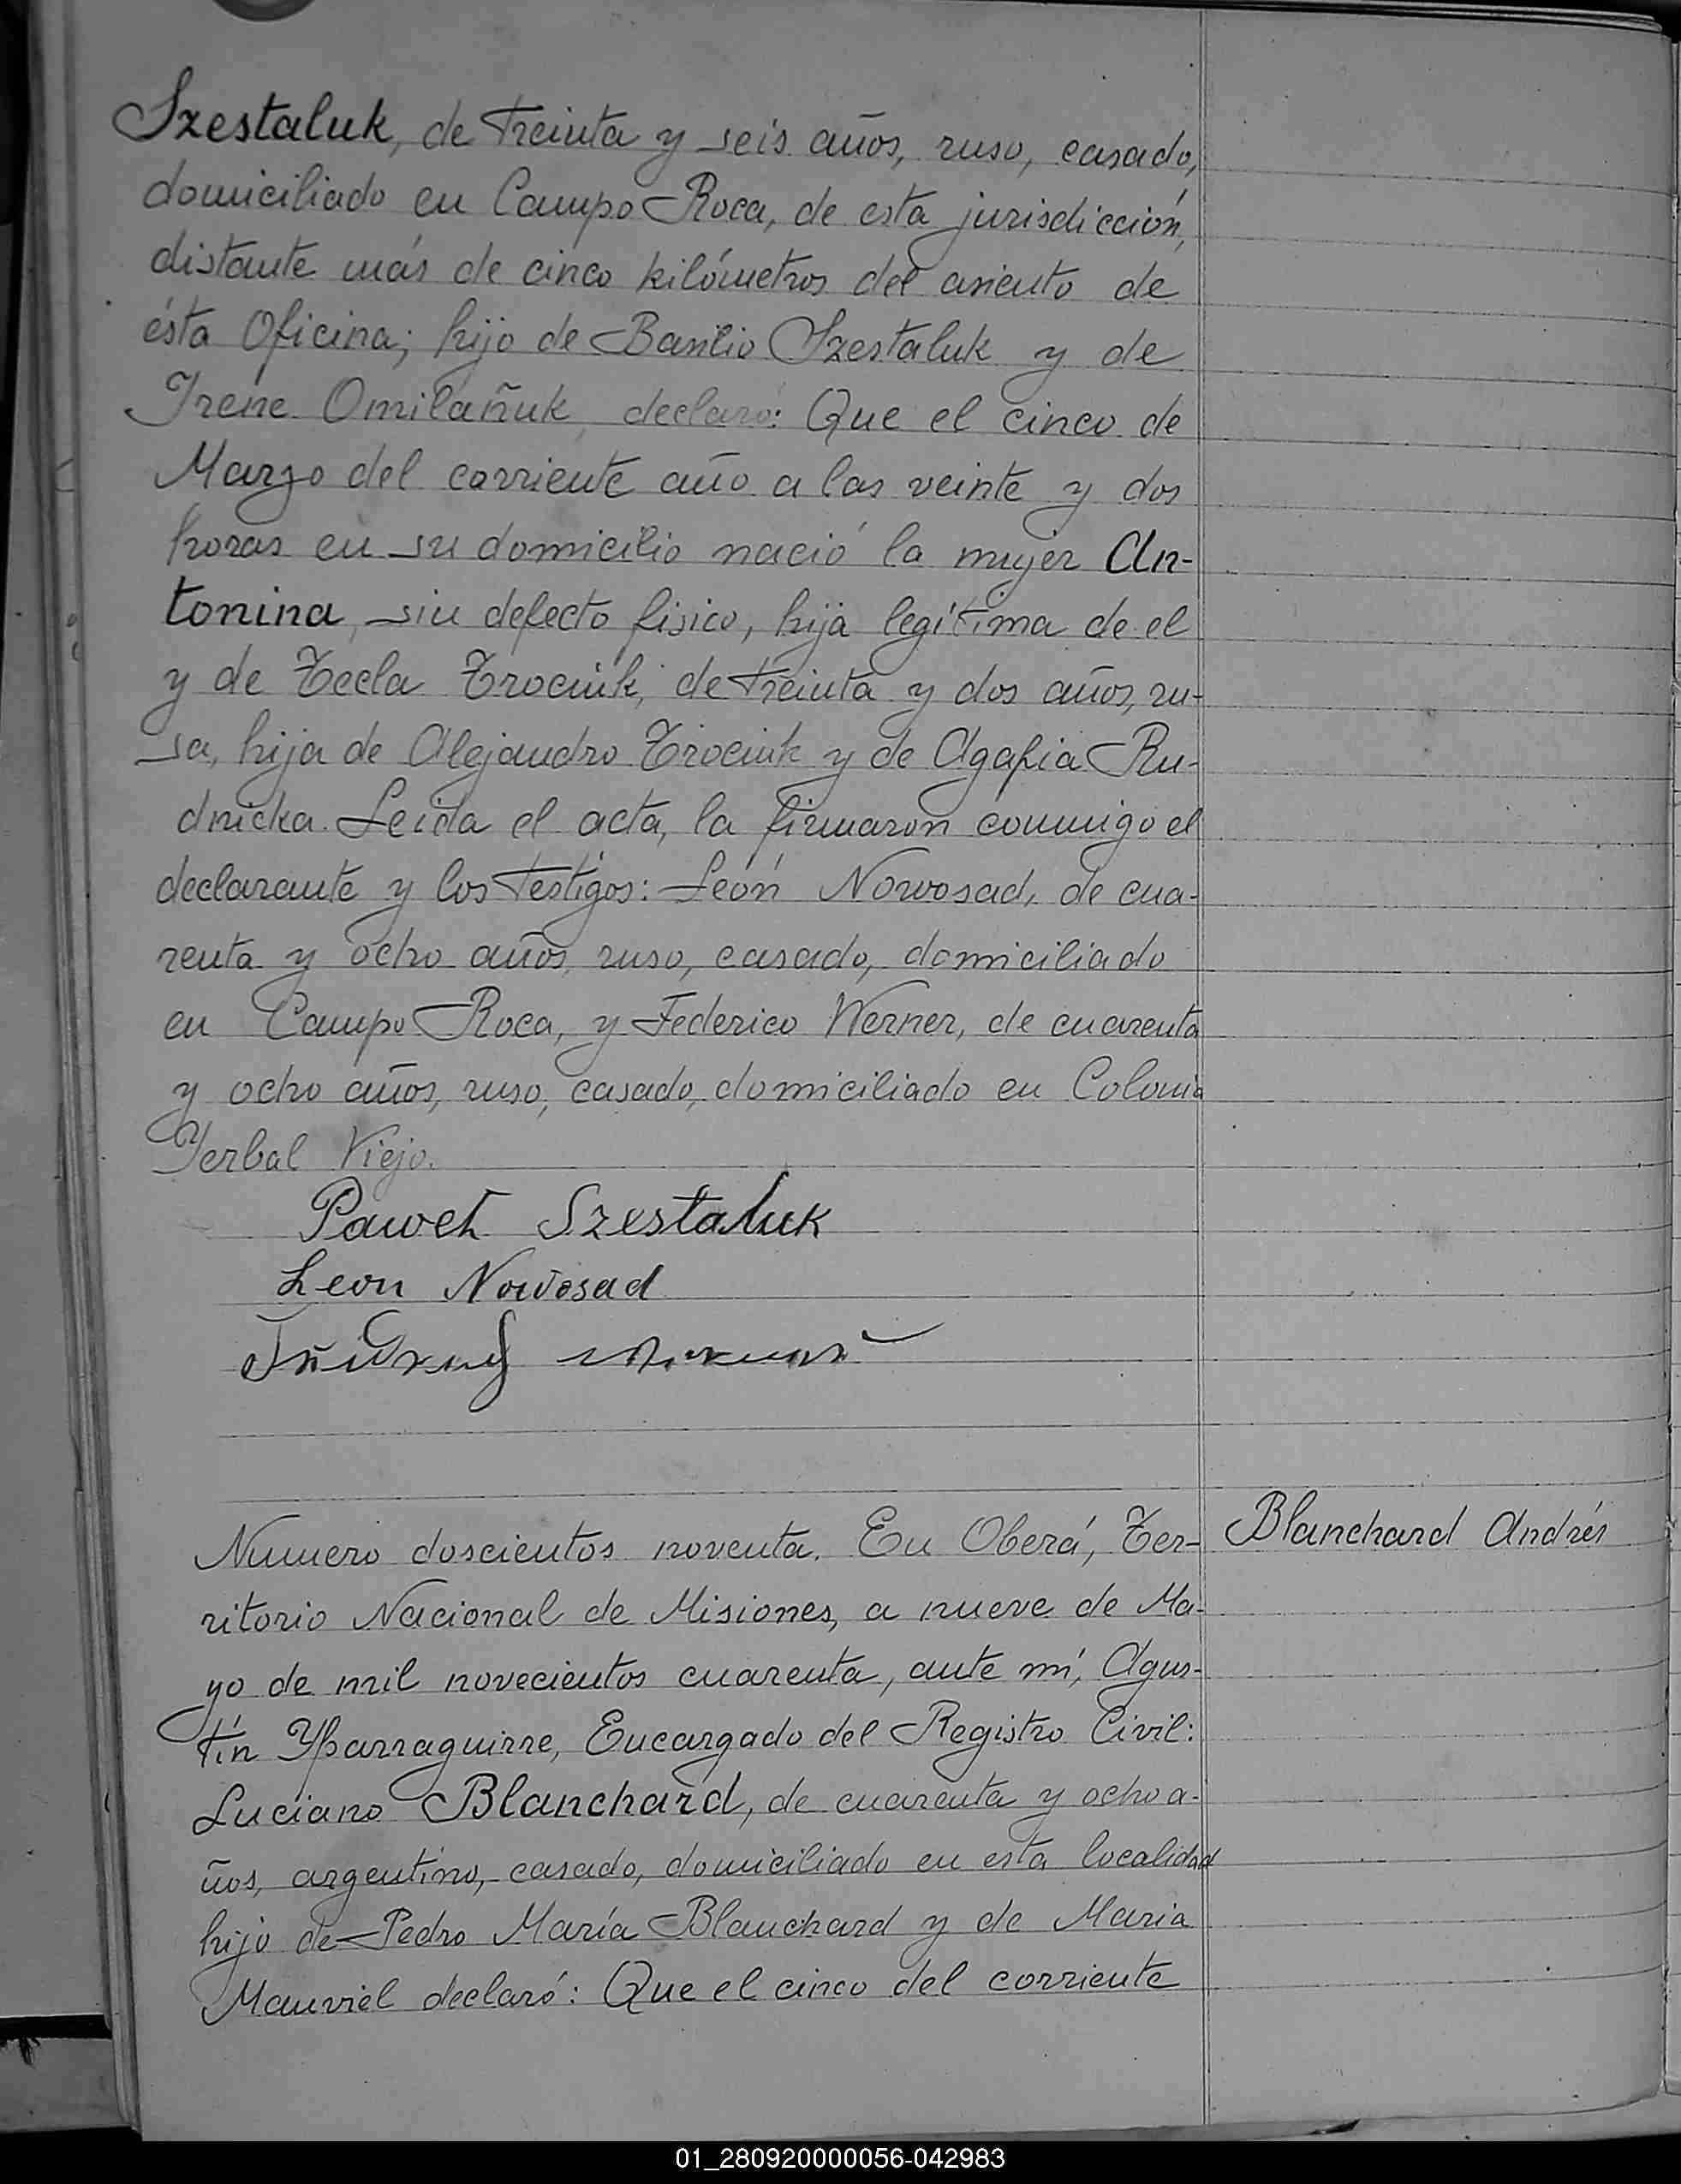 Szestaluk, de treinta y seis años, ruso, casado,
domiciliado en Campo Roca, de esta jurisdicción,
distante más de cinco kilómetros del asiento de
ésta Oficina; hijo de Basilio Szestaluk y de
Irene Omilañuk, declaró: Que el cinco de
Marzo del corriente año a las veinte y dos
horas en su domicilio nació la mujer An-
tonina, sin defecto fisico, hija legítima de el
y de Tecla Trociuk, de treinta y dos años, ru-
sa, hija de Alejandro Trociuk y de Agafia Ru-
dnicka. Leida el acta, la firmaron conmigo el
declarante y los testigos: León Nowosad, de cua-
renta y ocho años, ruso, casado, domiciliado
en Campo Roca, y Federico Werner, de cuarenta
y ocho años, ruso, casado, domiciliado en Colonia
Yerbal Viejo.
Paweł Szestaluk
Leon Nowosad
Numero doscientos noventa. En Oberá, Ter-
Blanchard Andrés
ritorio Nacional de Misiones, a nueve de Ma-
yo de mil novecientos cuarenta, ante mí, Agus-
tín Yparraguirre, Encargado del Registro Civil:
Luciano Blanchard, de cuarenta y ocho a-
ños, argentino, casado, domiciliado en esta localidad
hijo de Pedro María Blanchard y de Maria
Mauviel declaró: Que el cinco del corriente
01_280920000056-042983